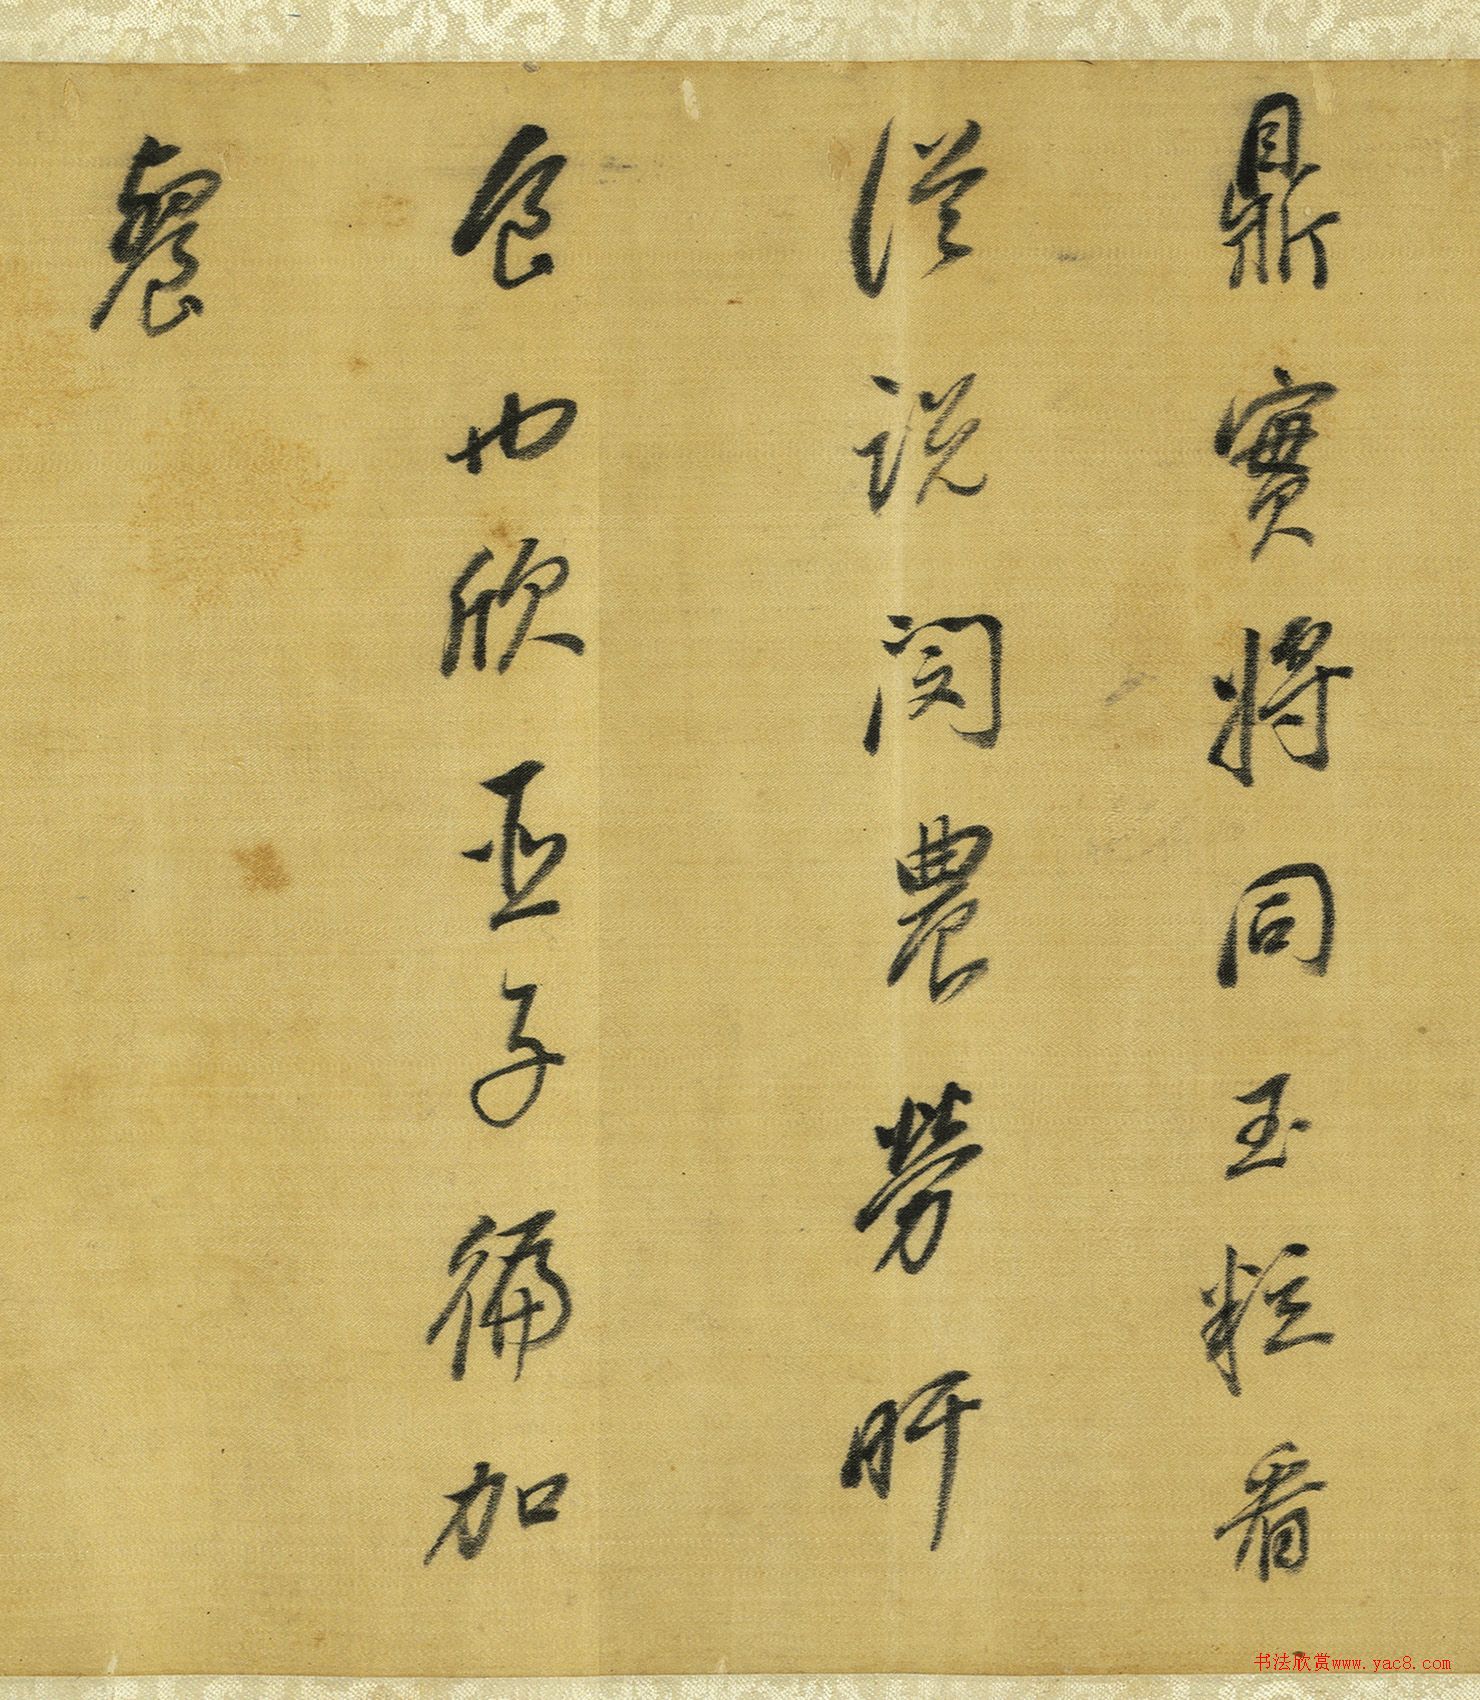 鼎實將同玉粒看
從說閔農勞旰
食也欣亞子徧加
餐
书法欣赏www.yac8.com